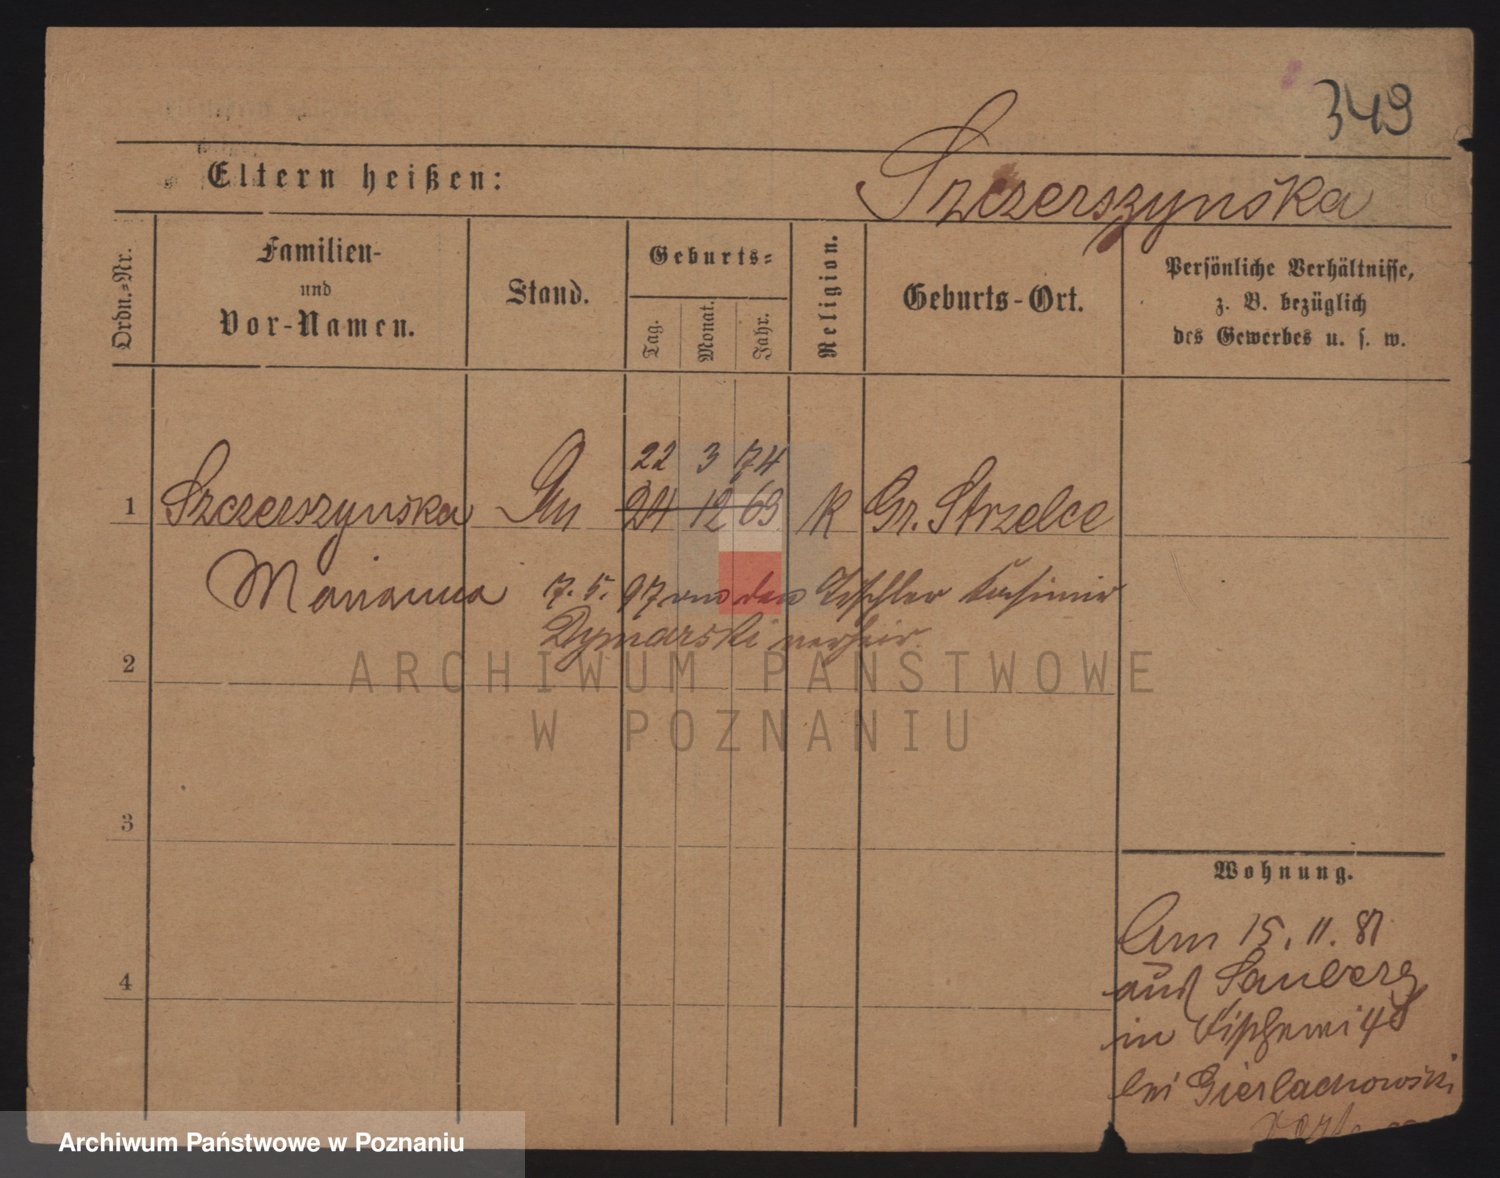 349
Eltern heißen:
Szczerszynska
Ordn.-Nr.
Familien-
und
Vor-Namen.
Stand.
Geburts-
Tag.
Monat.
Jahr.
Religion.
Geburts-Ort.
Persönliche Verhältnisse,
z. B. bezüglich
des Gewerbes u. s. w.
22 3 74
1 Szczerszynska 24 12 69 K Gr. Strzelce
Marianna 7. 5. 97 den Tischler Casimir
Dymarski verheir.
2
ARCHIWUM PAŃSTWOWE
W POZNANIU
3
4
Wohnung.
Am 15. 11. 81
aus
in Fischerei 48
bei Gierlachowski
Archiwum Państwowe w Poznaniu